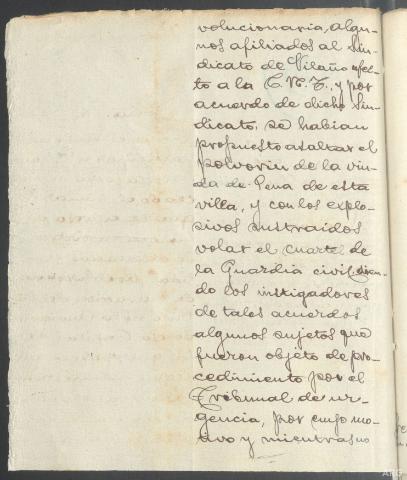 volucionaria, algu-
nos afiliados al Sin-
dicato de Vilaño afec-
to a la C.N.T., y por
acuerdo de dicho Sin-
dicato, se habian
propuesto asaltar el
polvorin de la viu-
da de Pena de esta
villa, y con los explo-
sivos sustraidos
volar el cuartel de
la Guardia civil, sien-
do los instigadores
de tales acuerdos
algunos sujetos que
fueron objeto de pro-
cedimiento por el
Tribunal de ur-
gencia, por cuyo mo-
tivo y mientras no